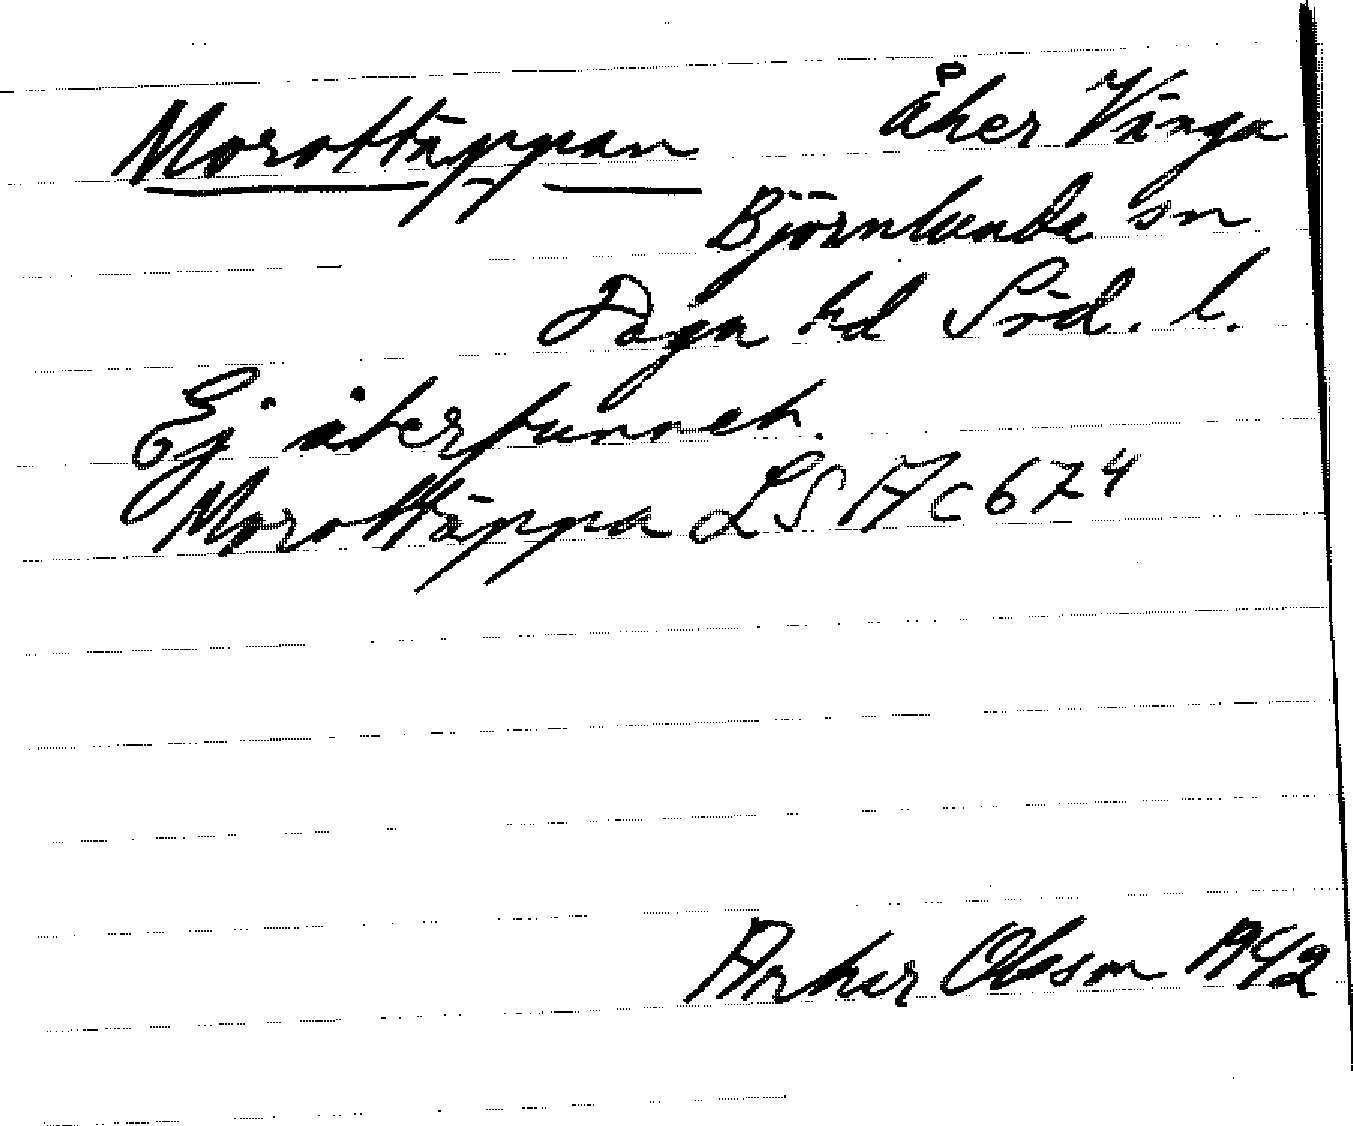 Morottäppan åker Vänga
Björnlunda sn
Daga hd Söd. l.
Ej återfunnen.
Morottäppa LSA C 67 4
Olsson 1942